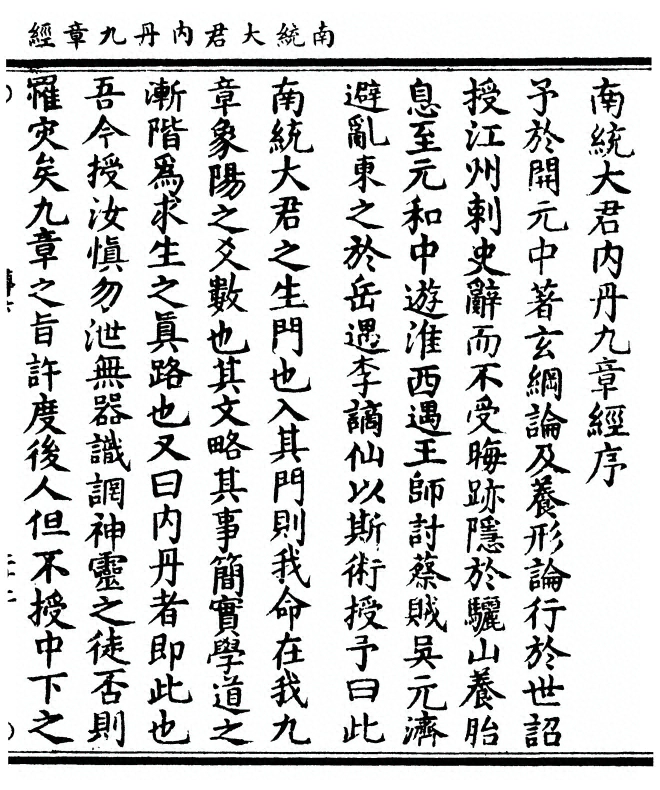 南統大君內丹九章經
南統大君內丹九章經序
予於開元中著玄綱論及養形論行於世詔
授江州刺史辭而不受晦跡隱於驪山養胎
息至元和中遊淮西遇王師討蔡賊吳元濟
避亂東之於岳遇李謫仙以斯術授予曰此
南統大君之生門也入其門則我命在我九
章象陽之爻數也其文略其事簡實學道之
漸階爲求生之眞路也又曰內丹者即此也
吾今授汝愼勿泄無器識謂神靈之徒否則
罹灾矣九章之旨許度後人但不授中下之